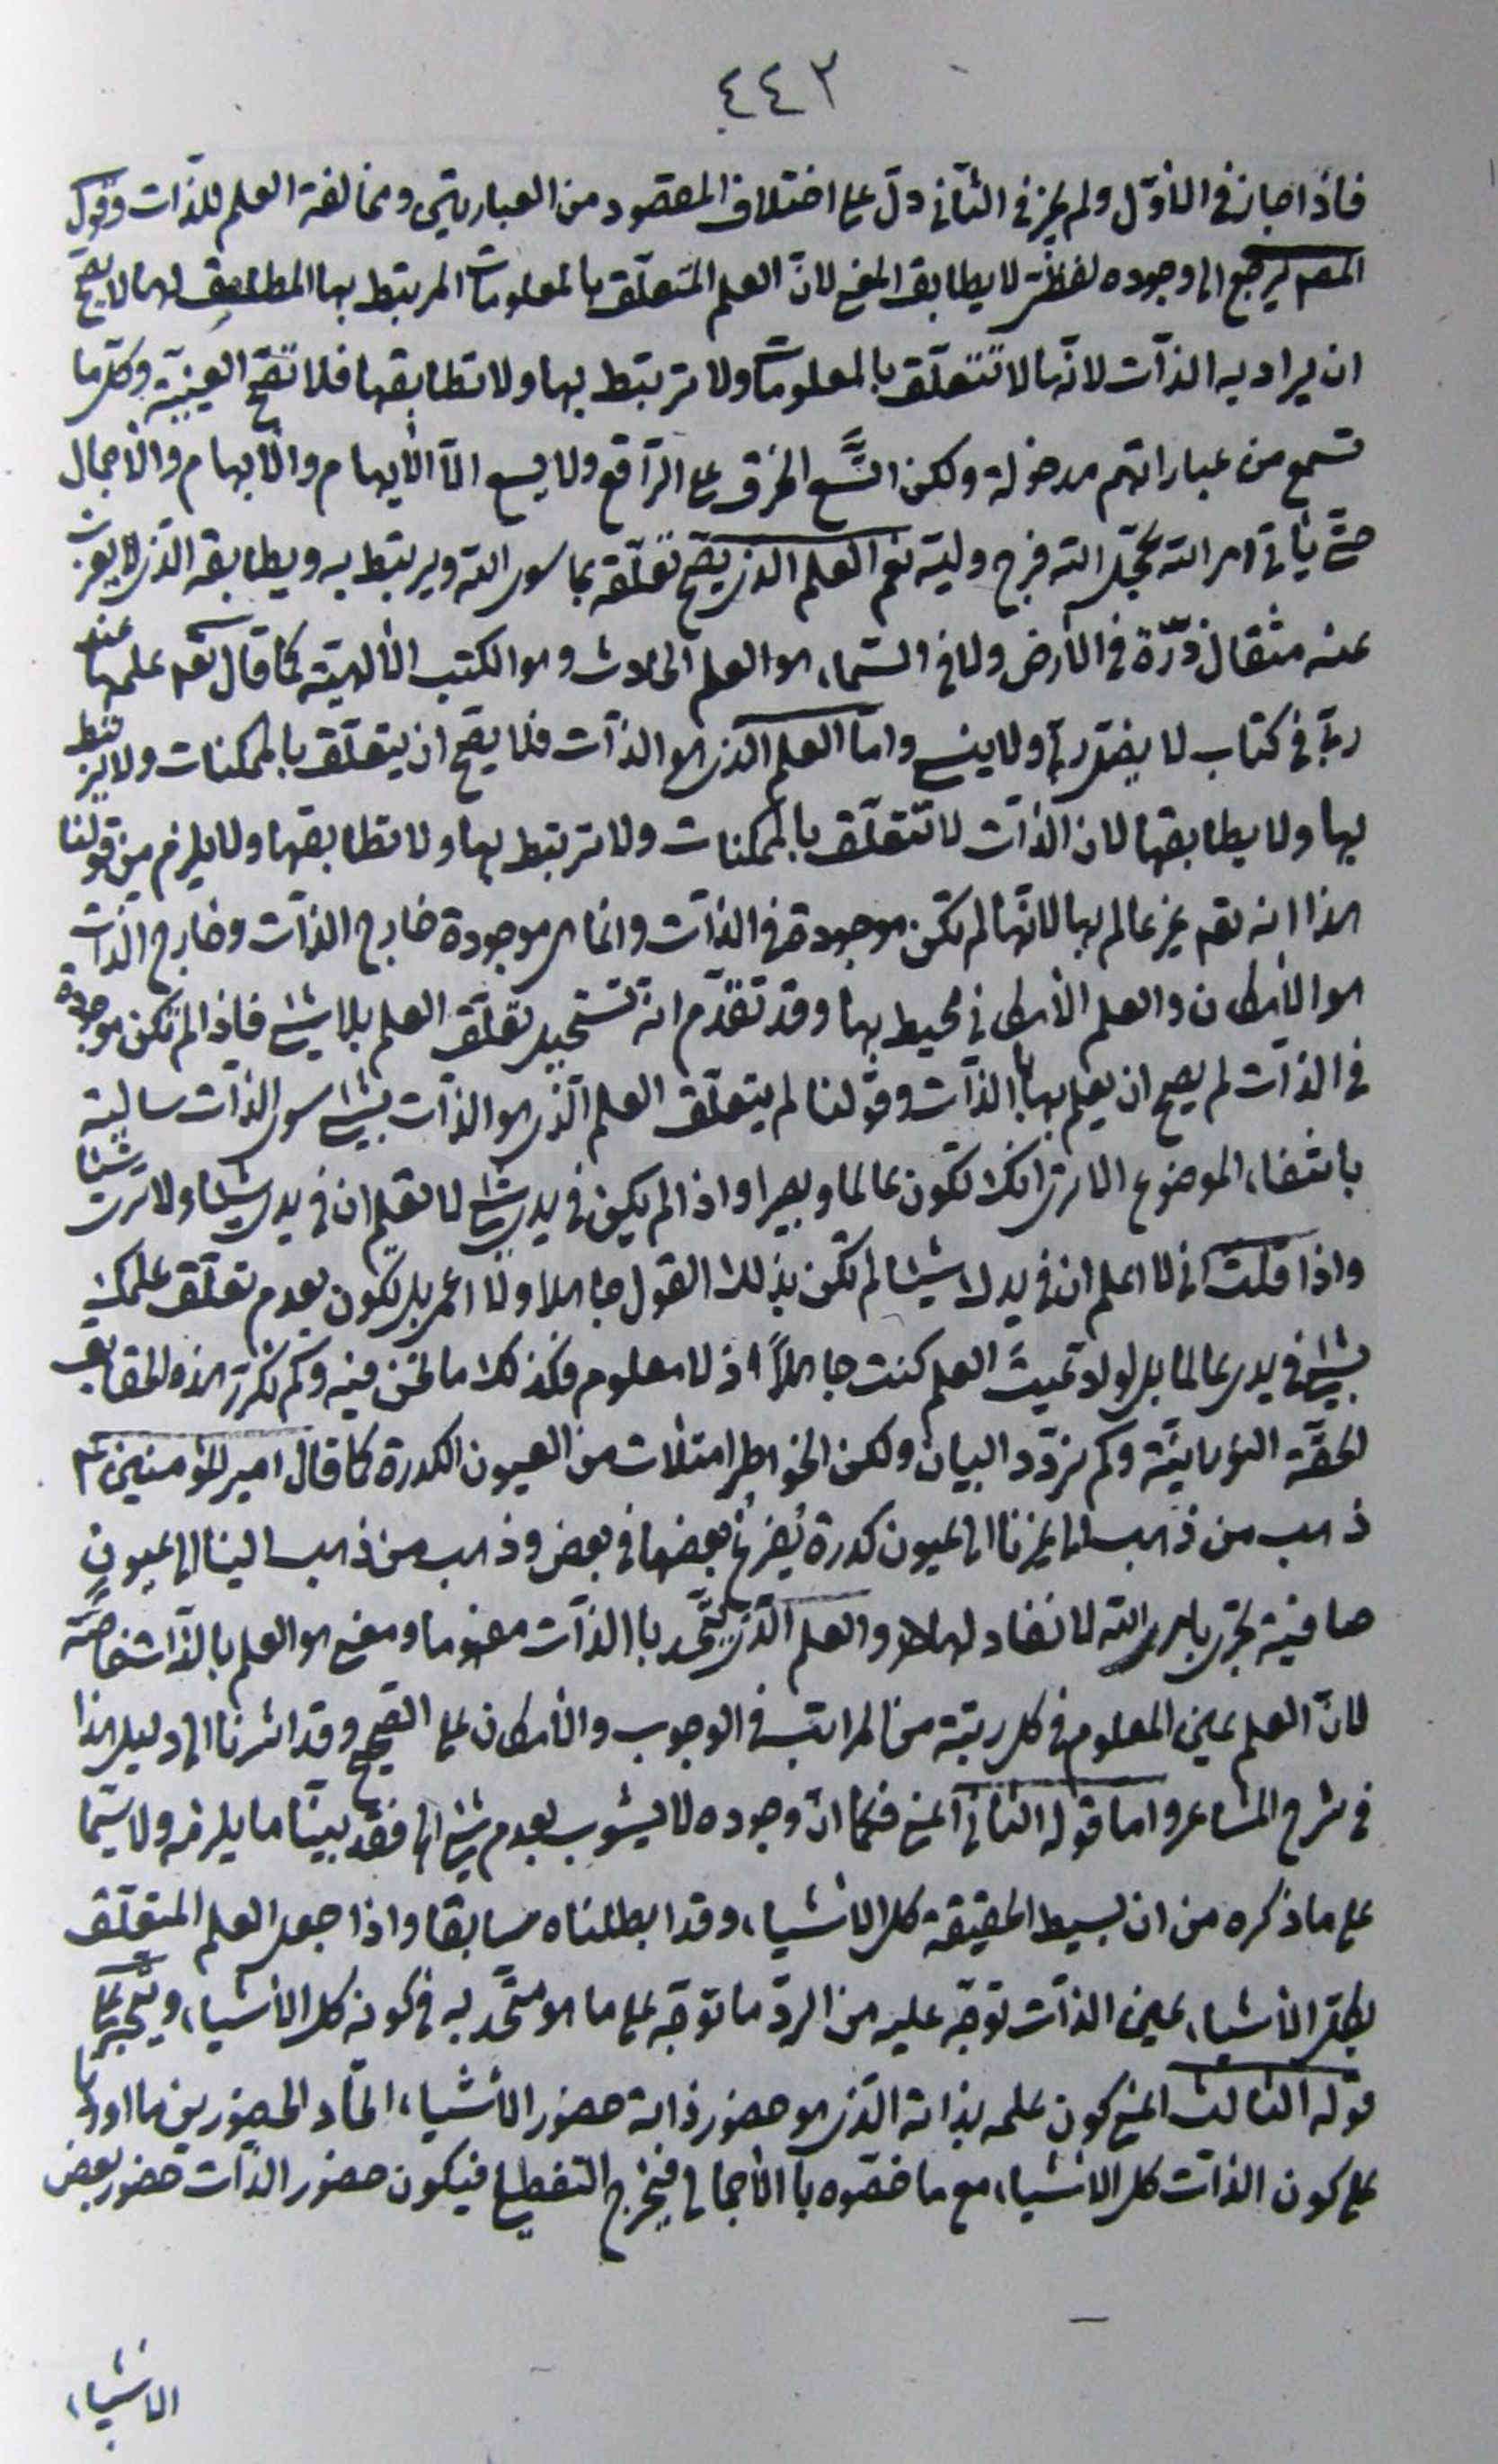 ٤٤٣
فاذا جاز فى الأوّل ولم يجز فى الثانى دلّ على اختلاف المقصود من العبارتين ومخالفة العلم للذّات وقول
المصـ يرجع الى وجوده لفظىّ لا يطابق المعنى لانّ العلم المتعلّق بالمعلومات المرتبط بها المطابق لها لا يصحّ
ان يراد به الذّات لانّها لا تتعلّق بالمعلومات ولا ترتبط بها ولا تطابقها فلا تصحّ العينيّة وكلّ ما
تسمع من عباراتهم مدخولة ولكن اتّسع الخرق على الرّاقع ولا يسع الّا الأيهام والأبهام والأجمال
حتّى يأتى امر اللّه عجّل اللّه فرج وليه نعم العلم الذى يصحّ تعلّقه بما سوى اللّه ويرتبط به ويطابقه الذى لا يعزب
عنه مثقال ذرّة فى الأرض ولا فى السّماء هو العلم الحادث وهو الكتب الألهيّة كما قال تعـ علمها عند
ربّى فى كتاب لا يضلّ ربّى ولا ينسى وامّا العلم الذى هو الذّات فلا يصحّ ان يتعلّق بالممكنات ولا يرتبط
بها ولا يطابقها لان الذّات لا تتعلّق بالممكنات ولا ترتبط بها ولا تطابقها ولا يلزم من قولنا
هذا انه تعـ غير عالم بها لانّها لم تكن موجودة فى الذّات وانما هى موجودة خارج الذّات وخارج الذّات
هو الأمكان والعلم الأمكانى محيط بها وقد تقدّم انّه تستحيل تعلّق العلم بلا شىء فاذا لم تكن موجودة
فى الذّات لم يصح ان يعلم بها بالذّات وقولنا لم يتعلّق العلم الّذى هو الذّات بشىء سوى الذّات سالبة
بانتفاء الموضوع الا ترى انّك تكون عالما وبصيرا واذا لم يكن فى يدى شىء لا تعلم ان فى يدى شيئا ولا ترى شيئا
واذا قلت انى لا اعلم ان فى يدك شيئا لم تكن بذلك القول جاهلا ولا اعمى بل تكون بعدم تعلّق علمك
بشىء فى يدى عالما بل لو ادّعيت العلم كنت جاهلاً اذ لا معلوم فكذلك ما نحن فيه وكم نكرّر هذه الحقايق
الحقّة النورانيّة وكم نردّد البيان ولكن الخواطر امتلأت من العيون الكدرة كما قال امير المؤمنين ع
ذهب من ذهب الى غيرنا الى عيون كدرة يفرغ بعضها فى بعض وذهب من ذهب الينا الى عيون
صافية تجرى بامر اللّه لا نفاد لها والعلم الّذى يتّحد بالذّات مفهوما ومعنى هو العلم بالذّات خاصّة
لأنّ العلم عين المعلوم فى كل رتبة من المراتب فى الوجوب والأمكان على الصّحيح وقد اشرنا الى دليل هذا
فى شرح المشاعر واما قوله الثانى اعنى فكما انّ وجوده لا يشوب بعدم شىء الخ فقد بيّنّا ما يلزمه ولا سيّما
على ما ذكره من ان بسيط الحقيقة كل الأشياء وقد ابطلناه سابقا واذا جعل العلم المتعلّق
بكلّ الأشياء عين الذّات توجّه عليه من الردّ ما توجّه على ما هو متّحد به فى كونه كل الأشياء ويتّجه على
قوله الثالث اعنى كون علمه بذاته الّذى هو حضور ذاته حضور الأشياء اتّحاد الحضورين ما اوردنا
على كون الذّات كل الاشياء مع ما خصّوه بالأجمالى فيخرج التفصيلى فيكون حضور الذّات حضور بعض
الاشياء